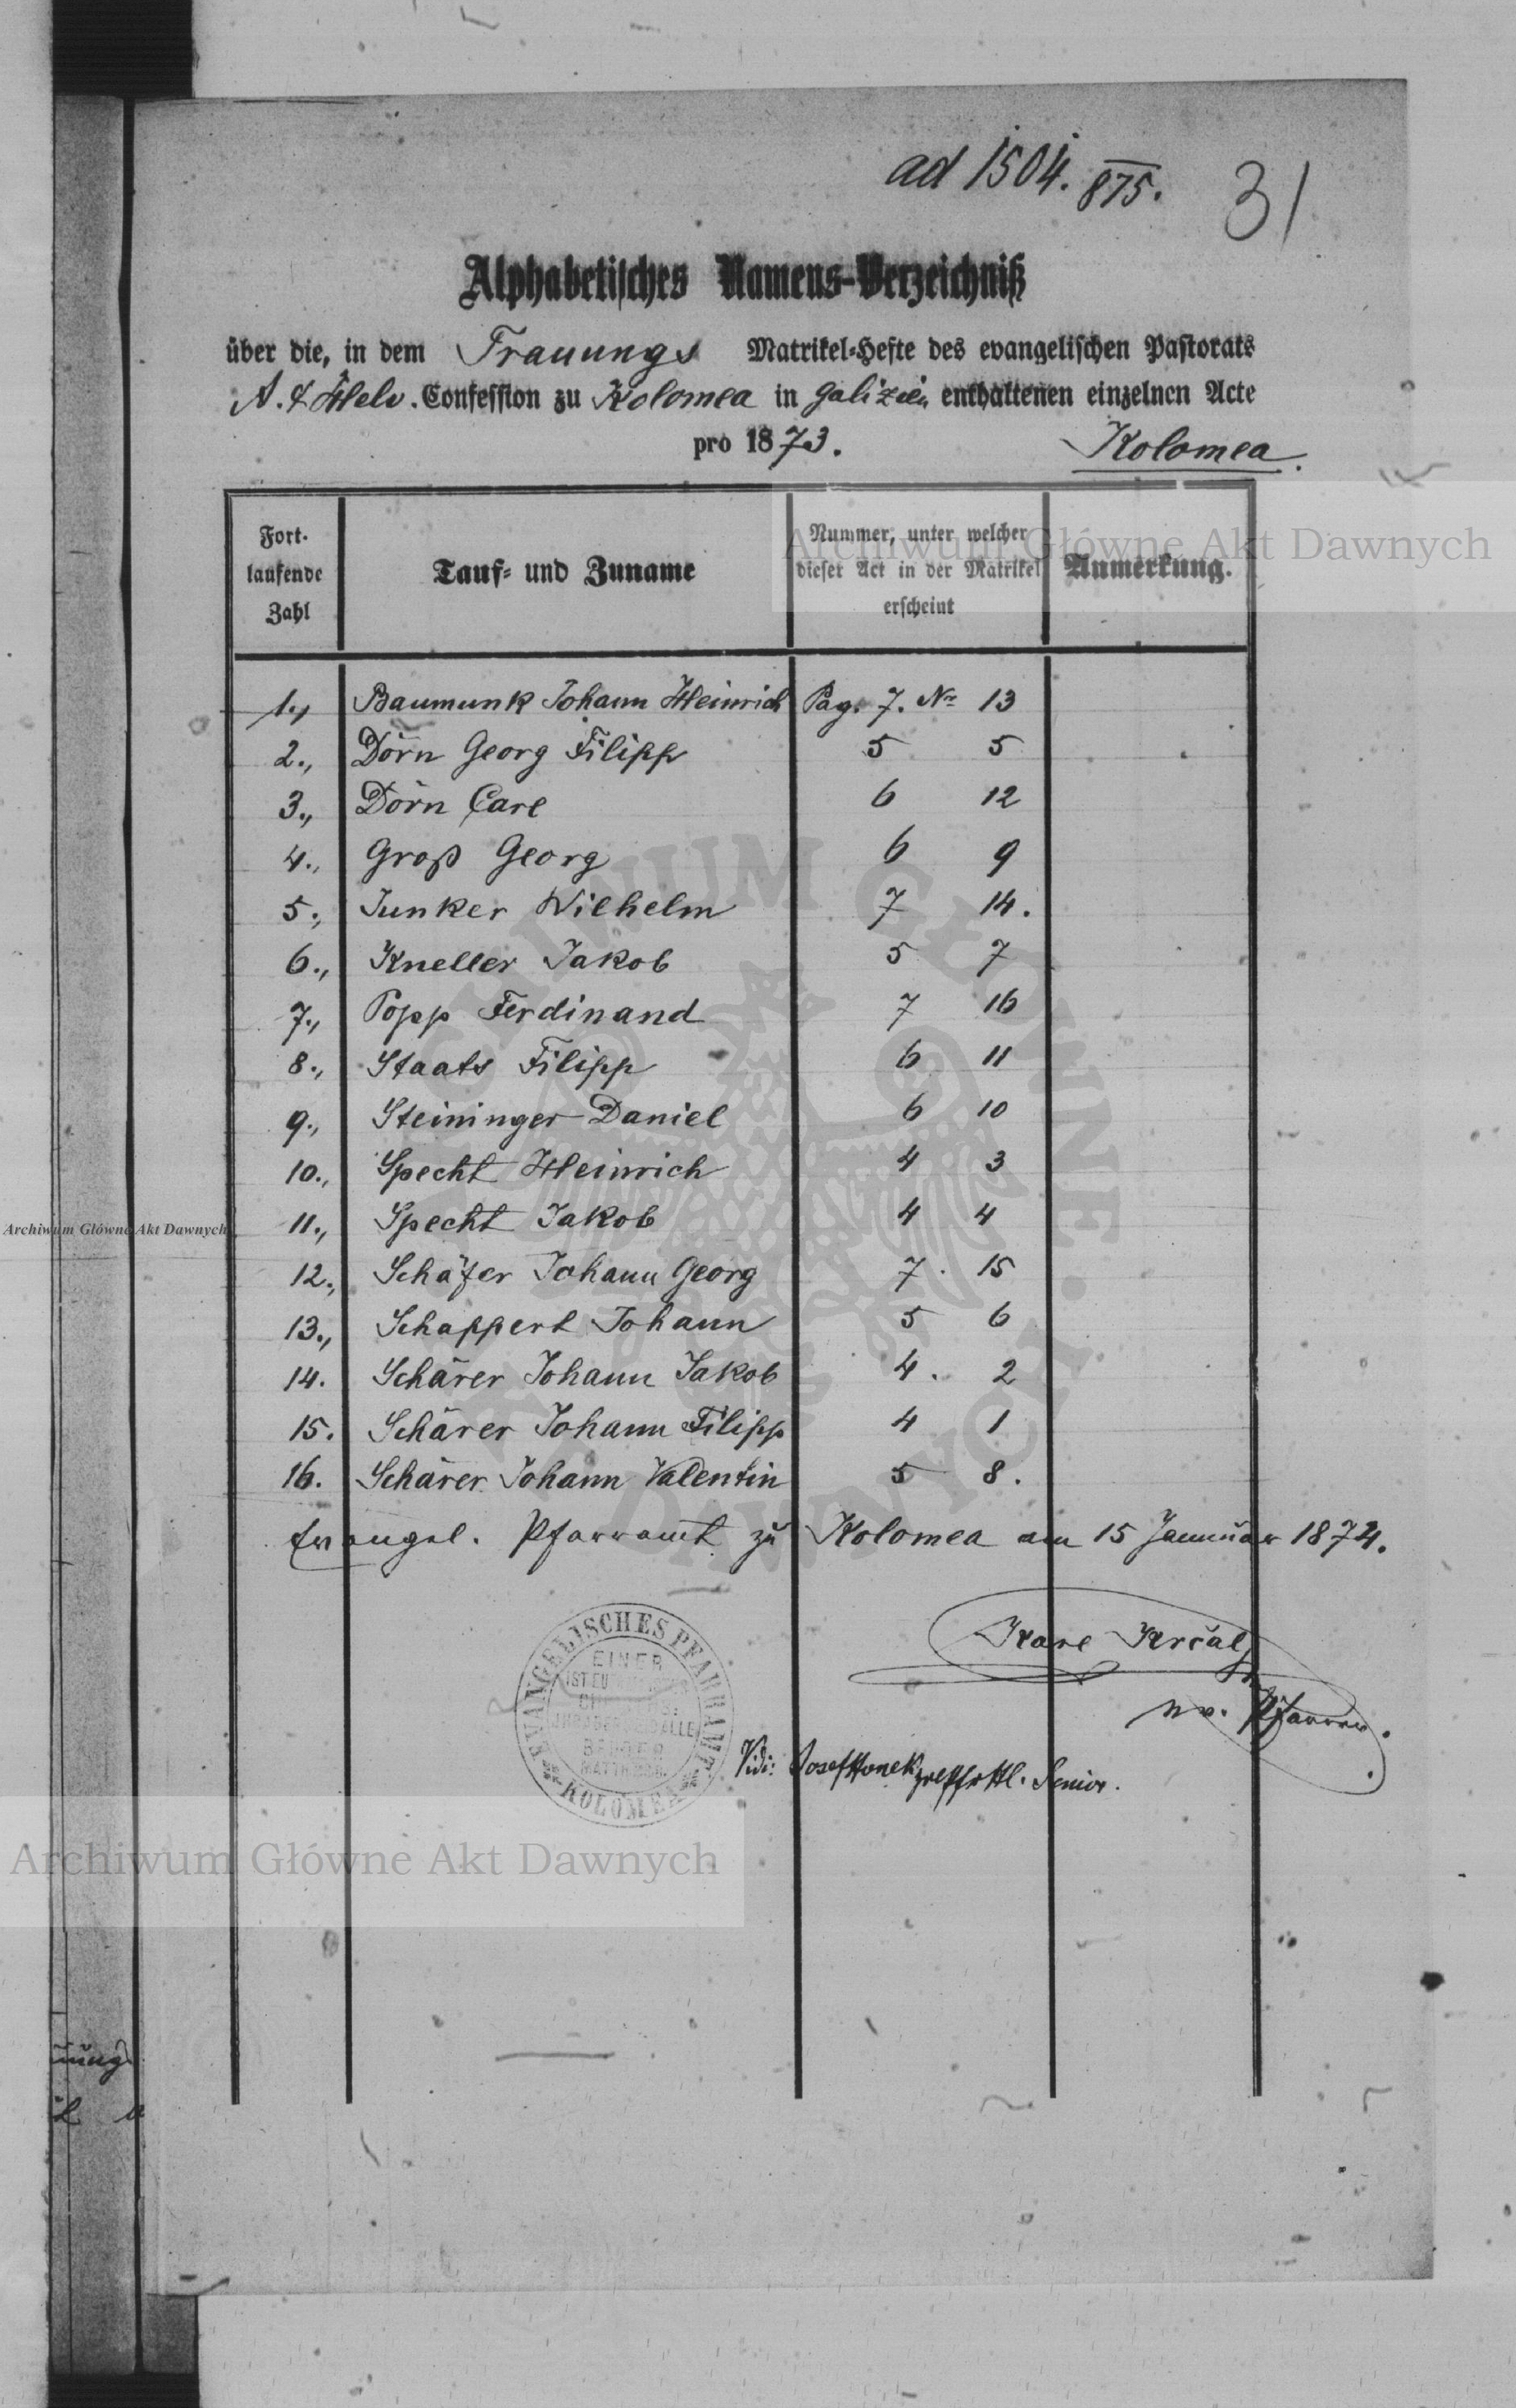 ad 1504. 875. 31
Alphabetisches Namens-Verzeichniß
über die, in dem Trauungs Matrikel-Hefte des evangelischen Pastorats
A. & Helv. Confession zu Kolomea in Galizien enthaltenen einzelnen Acte
pro 1873. Kolomea.
Fort-
laufende
Zahl
Tauf- und Zuname
Nummer, unter welcher
dieser Act in der Matrikel
erscheint
Anmerkung.
Archiwum Główne Akt Dawnych
1., Baumunk Johann Heinrich Pag. 7. Nr 13
2., Dörn Georg Filipp 5 5
3., Dörn Carl 6 12
4., Groß Georg 6 9
5., Junker Wilhelm 7 14.
6., Kneller Jakob 5 7
7., Popp Ferdinand 7 16
8., Staats Filipp 6 11
9., Steininger Daniel 6 10
10., Specht Heinrich 4 3
11., Specht Jakob 4 4
12., Schäfer Johann Georg 7. 15
13., Schappert Johann 5 6
14. Schärer Johann Jakob 4. 2
15. Schärer Johann Filipp 4 1
16. Schärer Johann Valentin 5 8.
Archiwum Główne Akt Dawnych
Evangel. Pfarramt zu Kolomea am 15 Januar 1874.
EVANGELISCHES PFARRAMT
KOLOMEA
EINER
IST EUER
Karl Krčal
Pfarrer.
Vidi: Josef Honek Senior.
Archiwum Główne Akt Dawnych
ARCHIWUM GŁÓWNE AKT DAWNYCH